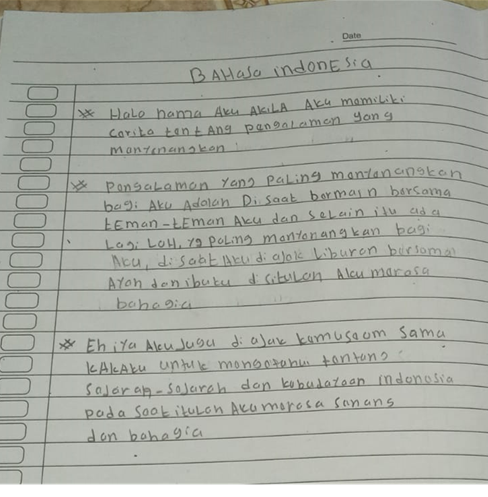 Date
BAHasa indonEsia
** Halo nama Aku AkiLA Aku momiliki
corita tentAng pengalaman yang
montonangkan.
** Pongalaman Yang Paling montonangkan
bagi Aku Adalah Di saat bormain borsama
tEman-tEman Aku dan selain itu ada
Lagi Loh, yg paling montonangkan bagi
Aku, di saat Aku di ajak Liburan borsama
Ayah dan ibuku disitulah Aku morasa
bahagia
** Eh iya Aku Juga di ajak komusoom sama
kAkAku untuk mongotahui tontang
sojarah-sojarah dan kobudayaan indonosia
pada saat itulah Aku morasa sonang
dan bahagia